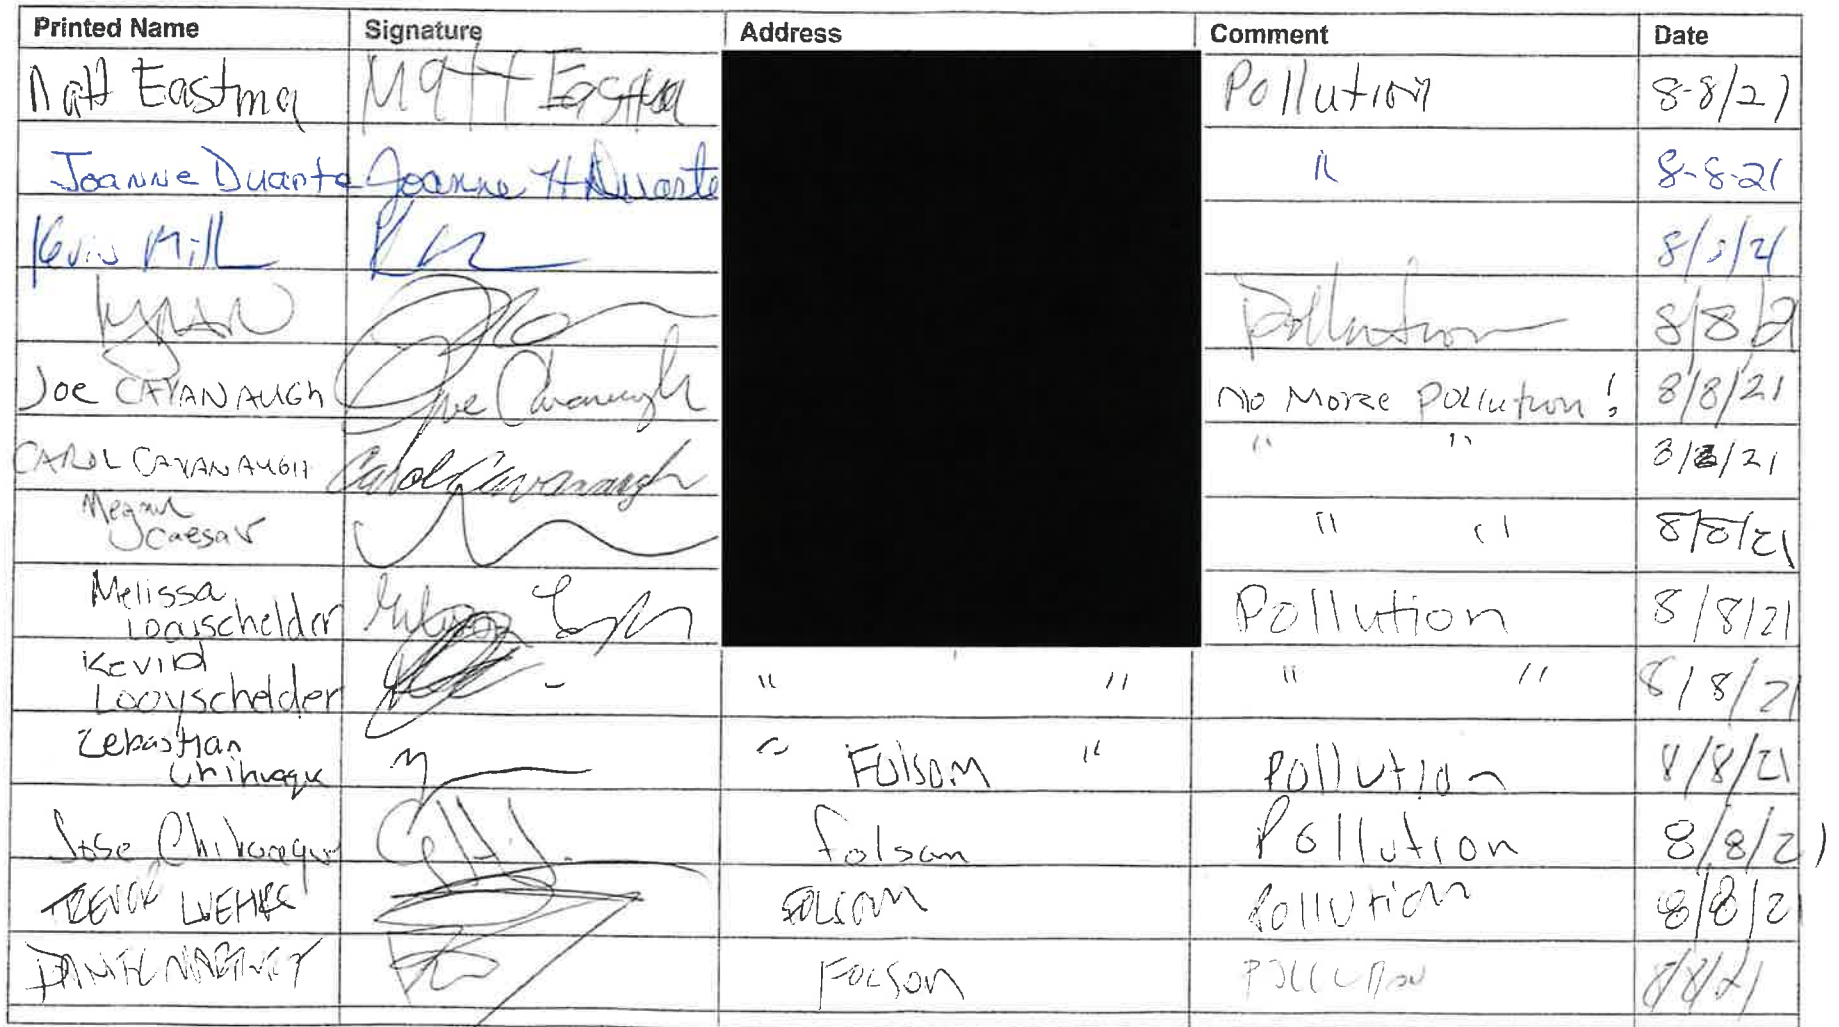 Printed Name Signature Address Comment Date
Matt Eastma Matt Eastma Pollution 8-8/21
Joanne Duarte Joanne H Duarte " 8-8-21
Kevin Mill 8/ /21
Pollution 8/8/21
Joe CAVANAUGh Joe Cavanaugh No More Pollution! 8/8/21
CAROL CAVANAUGH Carol Cavanaugh " " 8/8/21
Megan
Caesar " " 8/8/21
Melissa
Looyschelder Pollution 8/8/21
Kevin
Looyschelder " " " " 8/8/21
Zebastian
" Folsom " Pollution 8/8/21
Jose Folsom Pollution 8/8/21
Folsom Pollution 8/8/21
Folsom Pollution 8/8/21